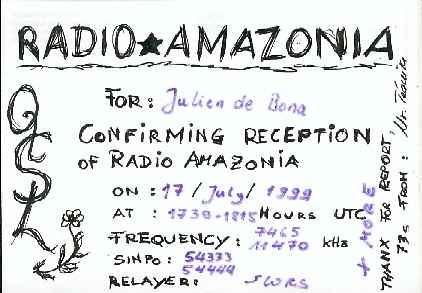 RADIO★AMAZONIA
QSL
FOR: Julien de Bona
CONFIRMING RECEPTION
OF RADIO AMAZONIA
ON : 17 / July / 1999
AT : 1730-1815 HOURS UTC
FREQUENCY: 7465
11470 kHz
SINPO: 54333
54444
RELAYER: SWRS
+ MORE
THANX FOR REPORT,
73s FROM: